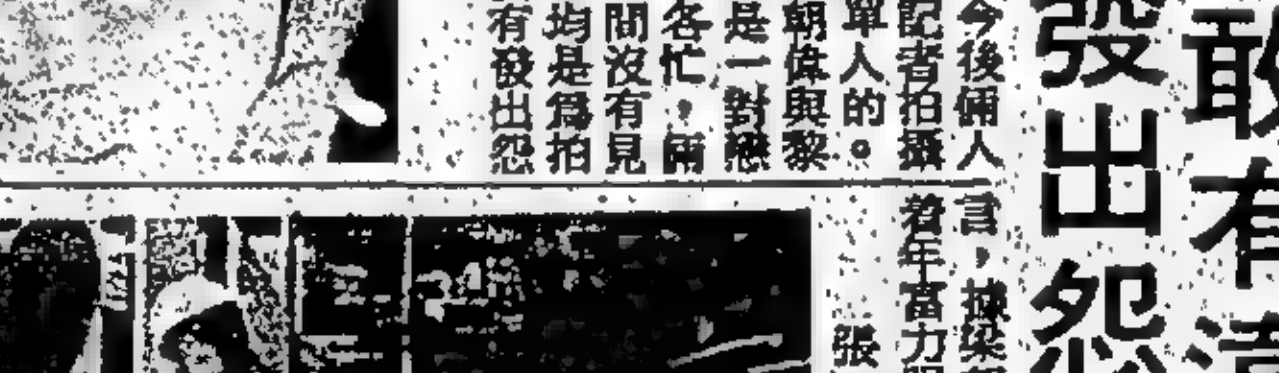 敢有
發出怨
今後倆人
記者拍攝
單人的。
朝偉與黎
是一對戀
各忙，兩
間沒有見
均是爲拍
有發出怨
言，據梁
着年富力
張